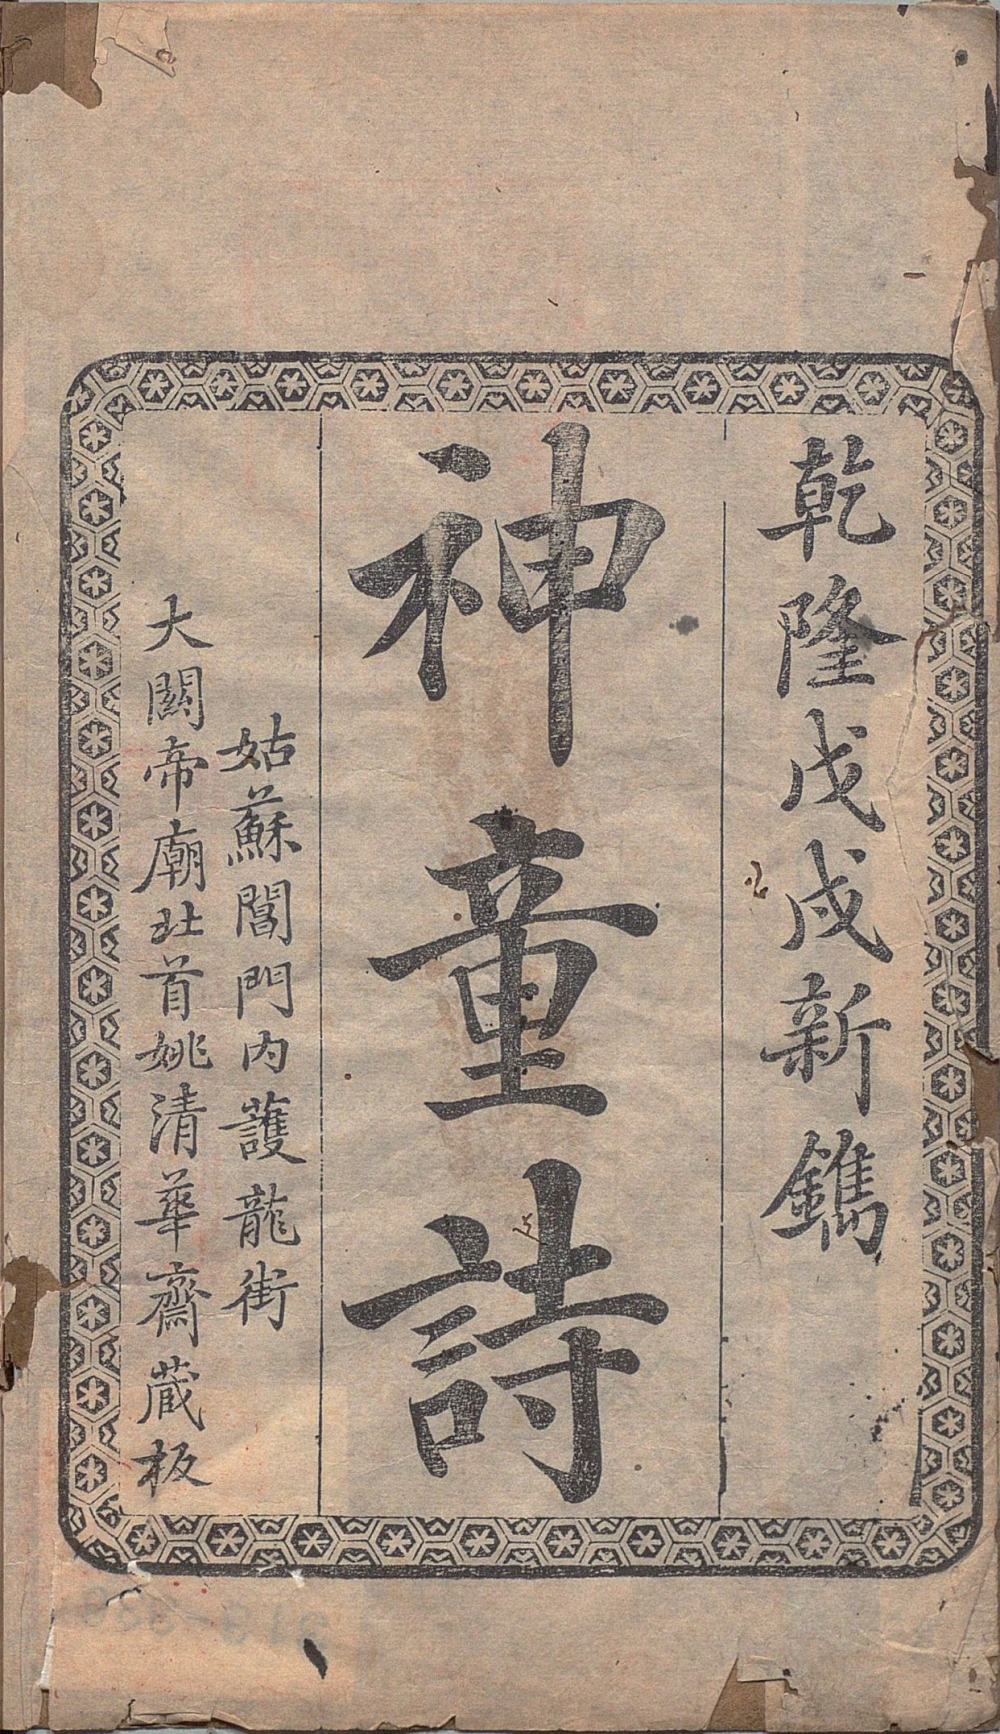 乾隆戊戌新鐫
神童詩
姑蘇閶門内護龍街
大關帝廟北首姚清華齋藏板